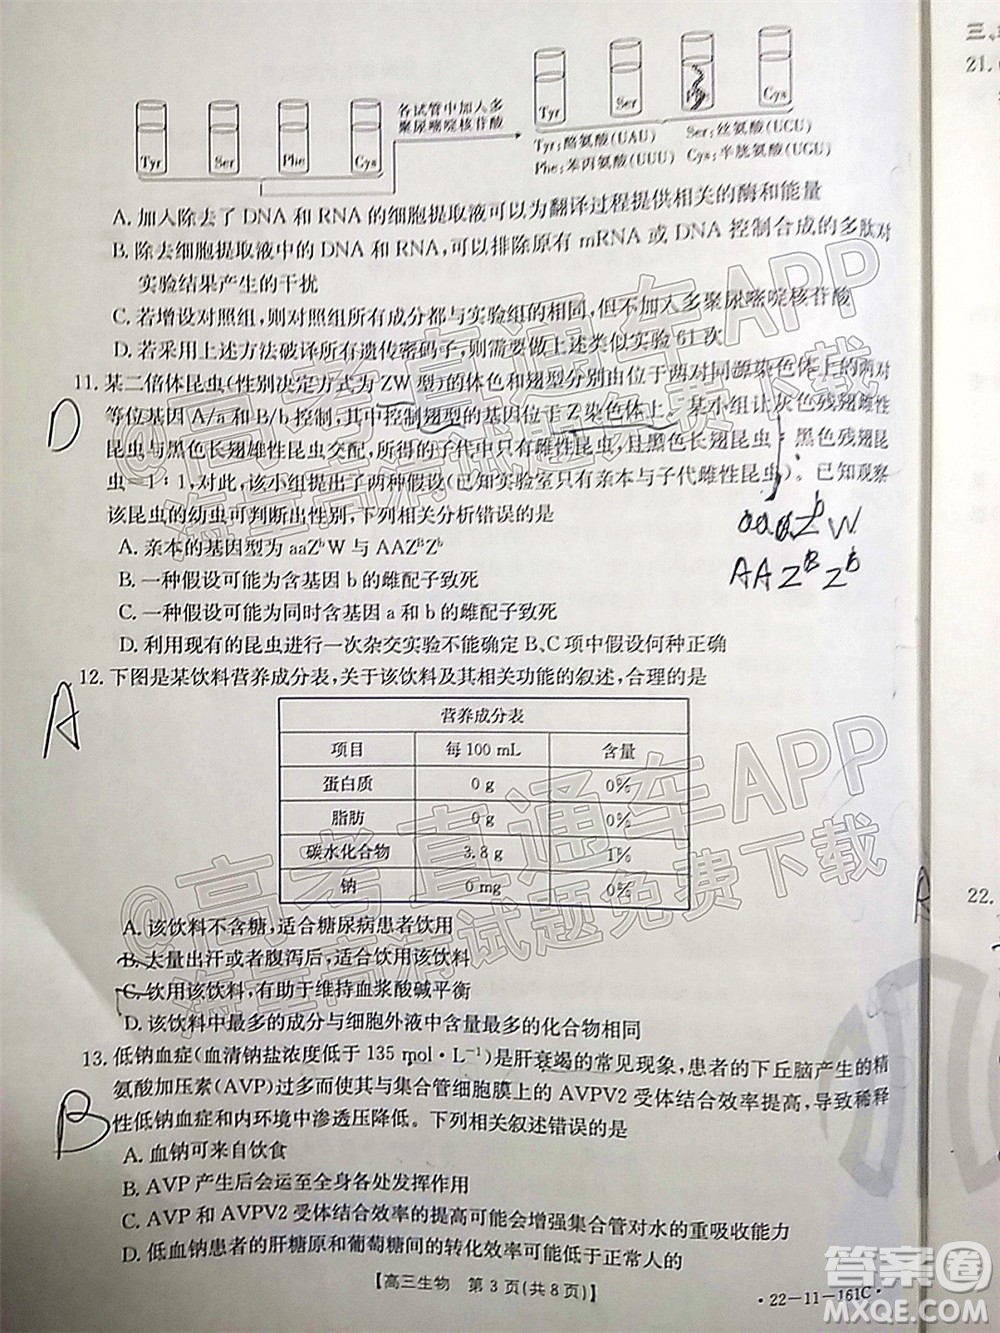 Tyr Ser Phe Cys
各试管中加入多
聚尿嘧啶核苷酸
Tyr Ser Phe Cys
Tyr:酪氨酸(UAU) Ser:丝氨酸(UCU)
Phe:苯丙氨酸(UUU) Cys:半胱氨酸(UGU)
A. 加入除去了 DNA 和 RNA 的细胞提取液可以为翻译过程提供相关的酶和能量
B. 除去细胞提取液中的 DNA 和 RNA,可以排除原有 mRNA 或 DNA 控制合成的多肽对
实验结果产生的干扰
C. 若增设对照组,则对照组所有成分都与实验组的相同,但不加入多聚尿嘧啶核苷酸
D. 若采用上述方法破译所有遗传密码子,则需要增设实验 61 次
11. 某二倍体昆虫(性别决定方式为 ZW 型)的体色和翅型分别由位于两对同源染色体上的两对
等位基因 A/a 和 B/b 控制,其中控制翅型的基因位于 Z 染色体上。某小组让灰色残翅雌性
昆虫与黑色长翅雄性昆虫交配,所得的子代中只有雌性昆虫,且黑色长翅昆虫:黑色残翅昆
虫=1:1,对此,该小组提出了两种假设(已知实验室只有亲本与子代雌性昆虫)。已知观察
该昆虫的幼虫可判断出性别,下列相关分析错误的是
D
A. 亲本的基因型为 aaZᵇW 与 AAZᴮZᵇ
B. 一种假设可能为含基因 b 的雌配子致死
C. 一种假设可能为同时含基因 a 和 b 的雌配子致死
D. 利用现有的昆虫进行一次杂交实验不能确定 B、C 项中假设何种正确
AAZᴮZᵇ
12. 下图是某饮料营养成分表,关于该饮料及其相关功能的叙述,合理的是
A
营养成分表
项目 每 100 mL 含量
蛋白质 0 g 0%
脂肪 0 g 0%
碳水化合物 3.8 g 1%
钠 0 mg 0%
A. 该饮料不含糖,适合糖尿病患者饮用
B. 大量出汗或者腹泻后,适合饮用该饮料
C. 饮用该饮料,有助于维持血浆酸碱平衡
D. 该饮料中最多的成分与细胞外液中含量最多的化合物相同
13. 低钠血症(血清钠盐浓度低于 135 mol·L⁻¹)是肝衰竭的常见现象,患者的下丘脑产生的精
氨酸加压素(AVP)过多而使其与集合管细胞膜上的 AVPV2 受体结合效率提高,导致稀释
性低钠血症和内环境中渗透压降低。下列相关叙述错误的是
B
A. 血钠可来自饮食
B. AVP 产生后会运至全身各处并发挥作用
C. AVP 和 AVPV2 受体结合效率的提高可能会增强集合管对水的重吸收能力
D. 低血钠患者的肝糖原和葡萄糖间的转化效率可能低于正常人的
【高三生物 第 3 页(共 8 页)】
·22-11-161C·
三、
21.
22.
@高考直通车APP
海量高清试题免费下载
@高考直通车APP
海量高清试题免费下载
答案圈
MXQE.COM